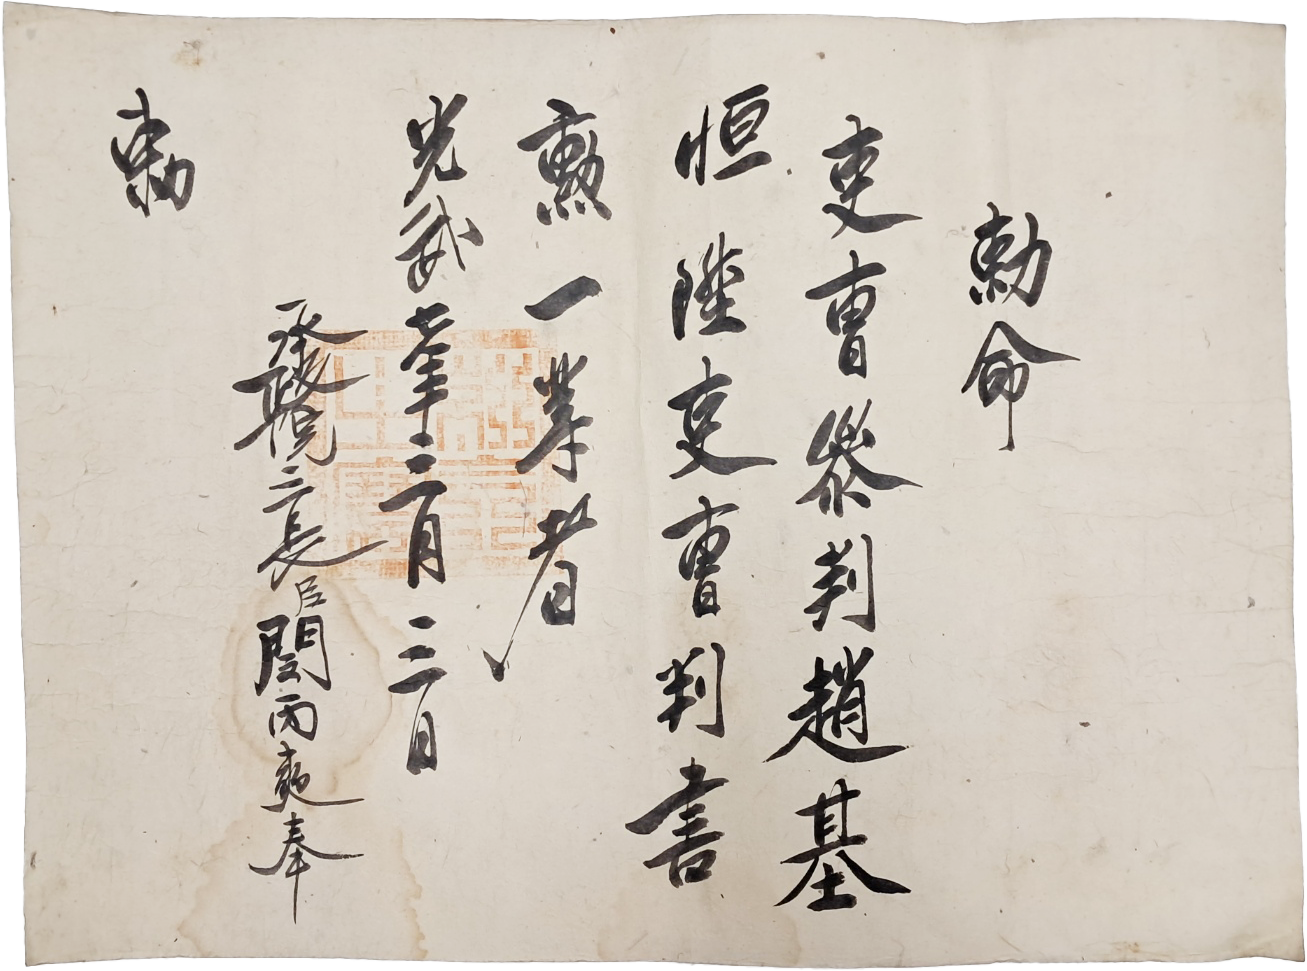 勅命
吏曹參判趙基
恒陞吏曹判書
勳一業者
光武七年二月三日
承二長臣閔丙奭奉
勅